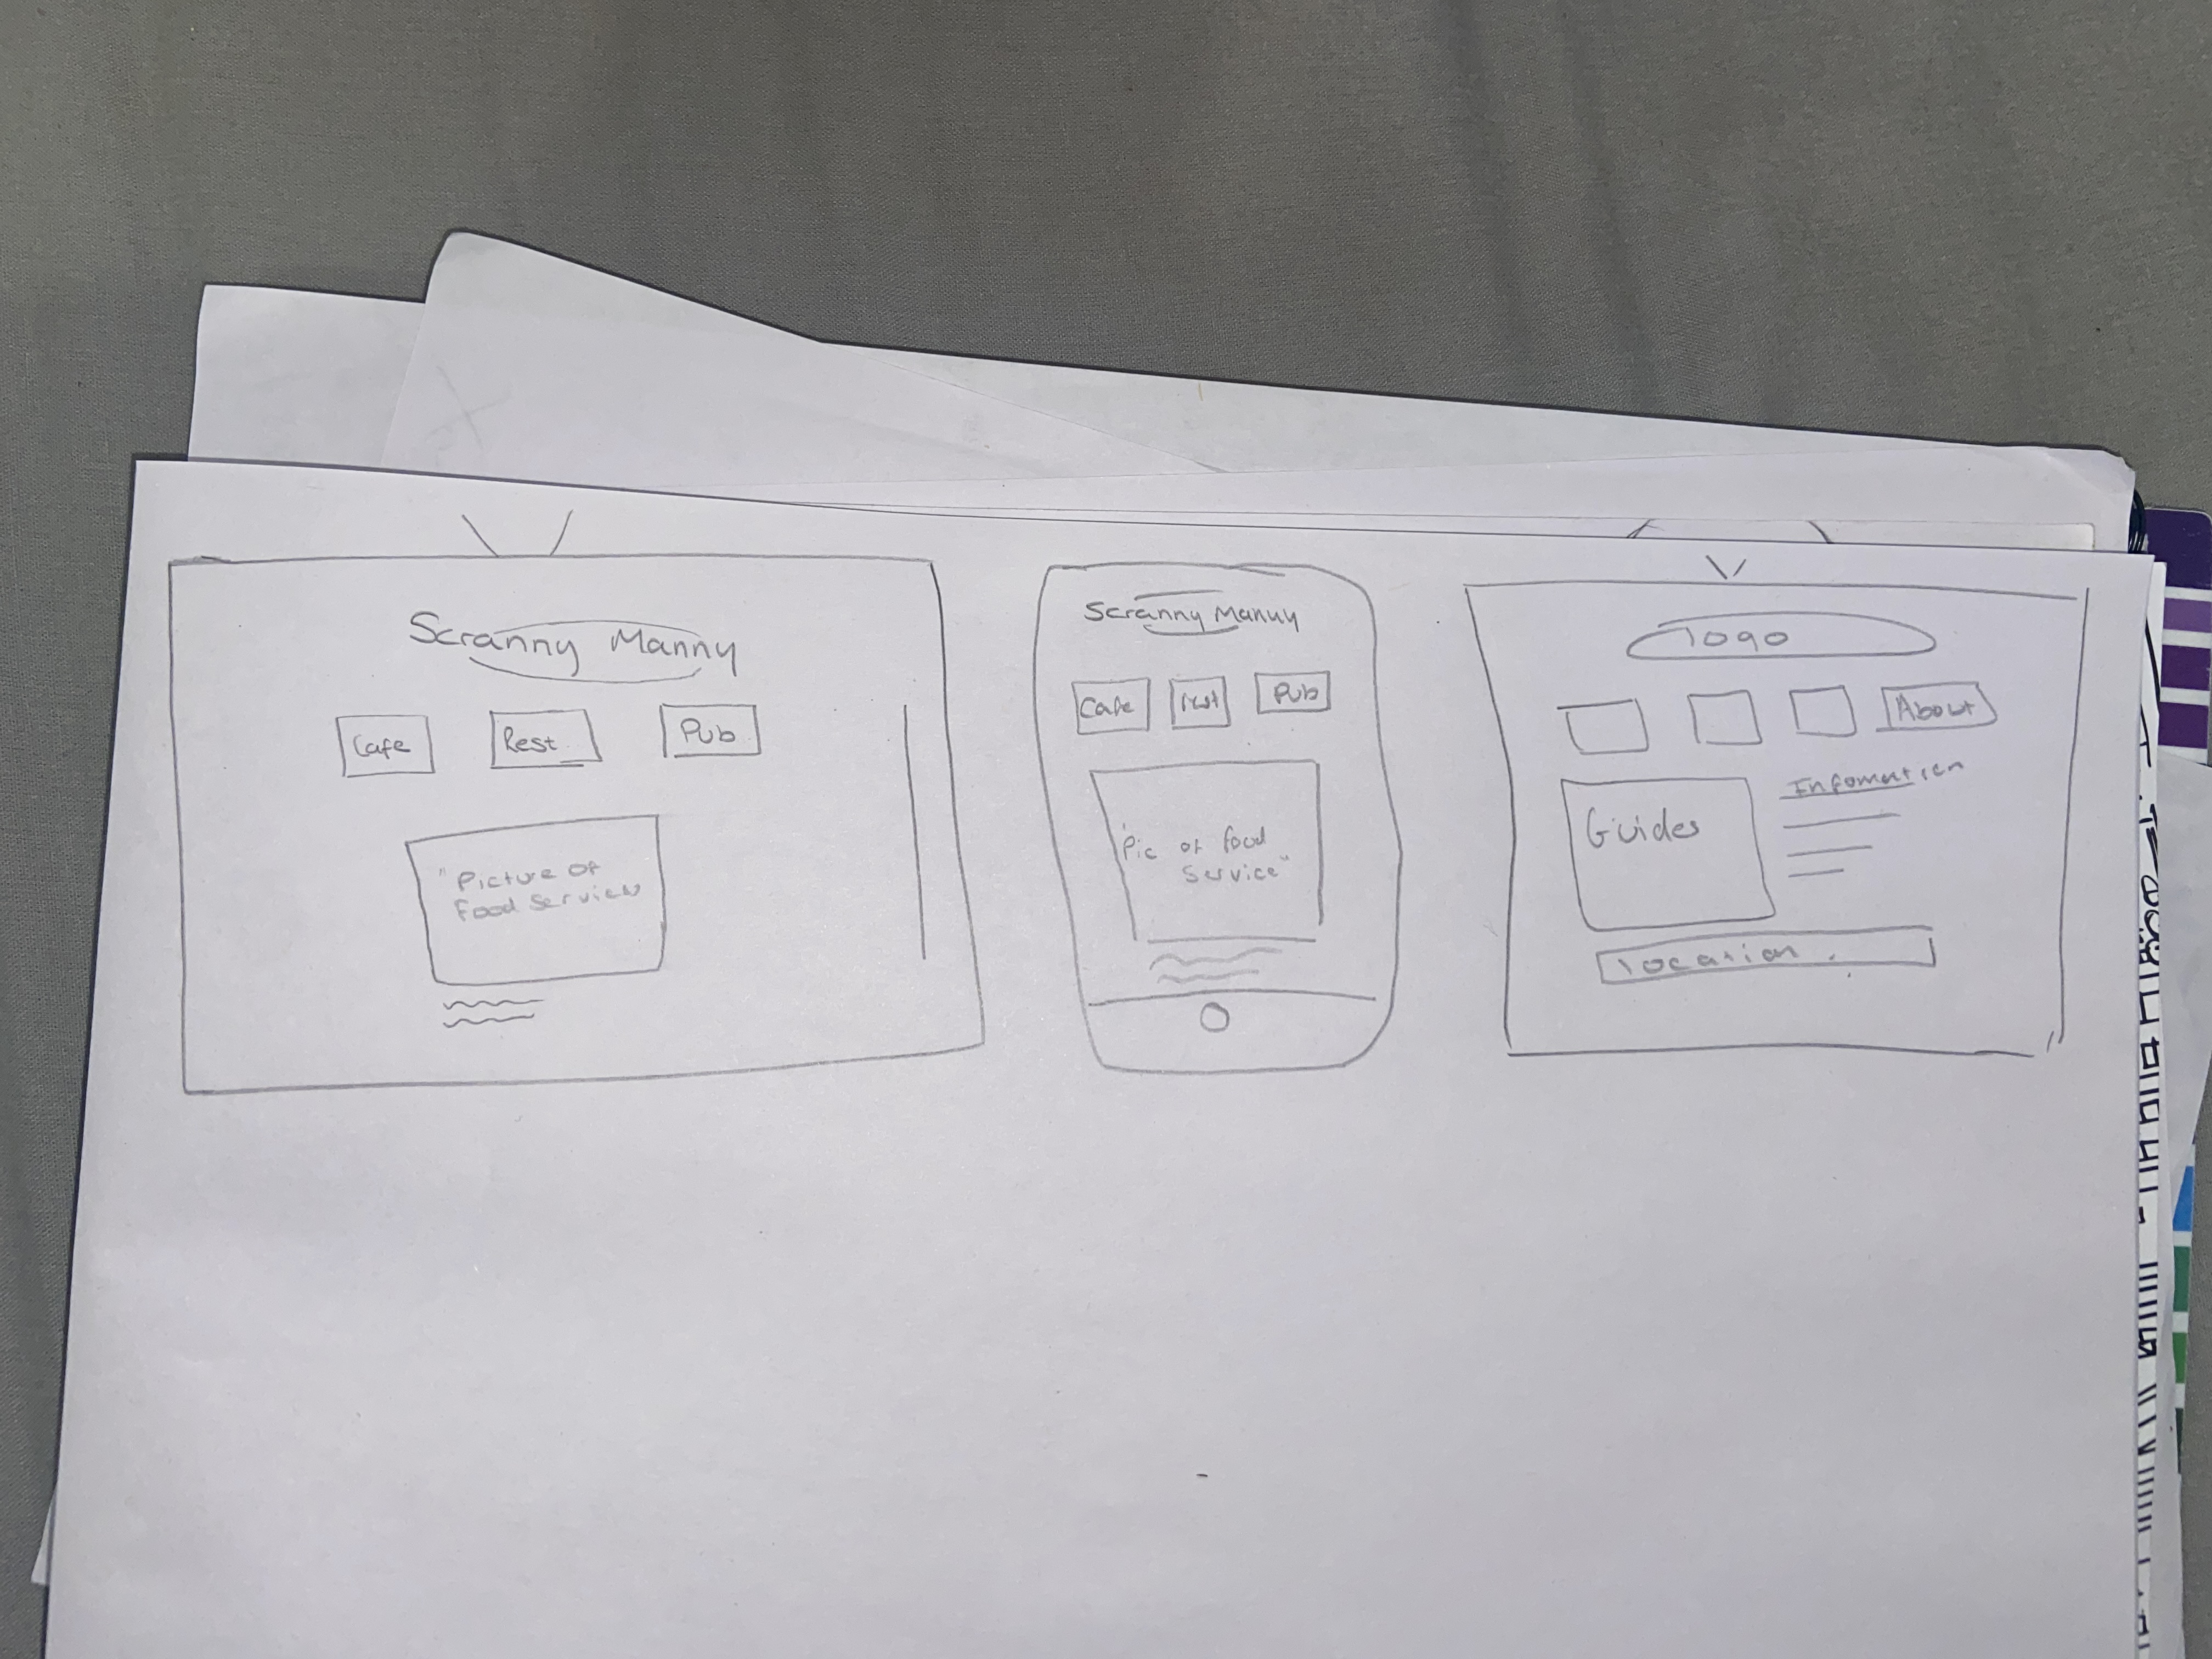 Scranny Manny
Cafe
Rest
Pub
"Picture of
food service
Scranny Manny
Cafe
rest
Pub
"Pic of food
service"
logo
About
Guides
Infomation
location.